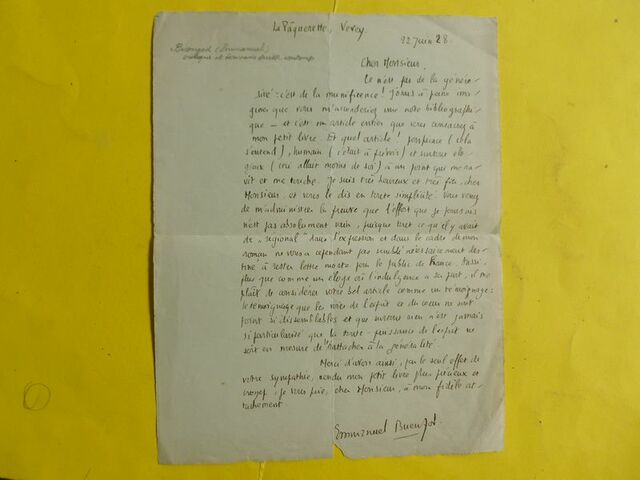 La Pâquerette, Vevey
22 Juin 28.
Buenzod (Emmanuel)
critique et écrivain suisse contemp.
Cher Monsieur,
Ce n'est pas de la généro-
sité : c'est de la munificence ! J'osais à peine ima-
giner que vous m'accorderiez une note bibliographi-
que – et c'est un article entier que vous consacrez à
mon petit livre. Et quel article ! perspicace (cela
s'entend), humain (c'était à prévoir) et surtout élo-
gieux (ceci allait moins de soi) à un point qui me ra-
vit et me touche. Je suis très heureux et très fier, cher
Monsieur, et vous le dis en toute simplicité. Vous venez
de m'administrer la preuve que l'effort que je poursuis
n'est pas absolument vain, puisque tout ce qu'il y avait
de "régional" dans l'expression et dans le cadre de mon
roman ne vous a cependant pas semblé nécessairement des-
tiné à rester lettre morte pour le public de France. Aussi,
plus que comme un éloge où l'indulgence a sa part, il me
plaît de considérer votre bel article comme un témoignage :
le témoignage que les voies de l'esprit et du cœur ne sont
point si dissemblables et que surtout rien n'est jamais
si particularisé que la toute-puissance de l'esprit ne
soit en mesure de l'attacher à la généralité.
Merci d'avoir ainsi, par le seul effet de
votre sympathie, rendu mon petit livre plus précieux et
croyez, je vous prie, cher Monsieur, à mon fidèle at-
tachement.
Emmanuel Buenzod.